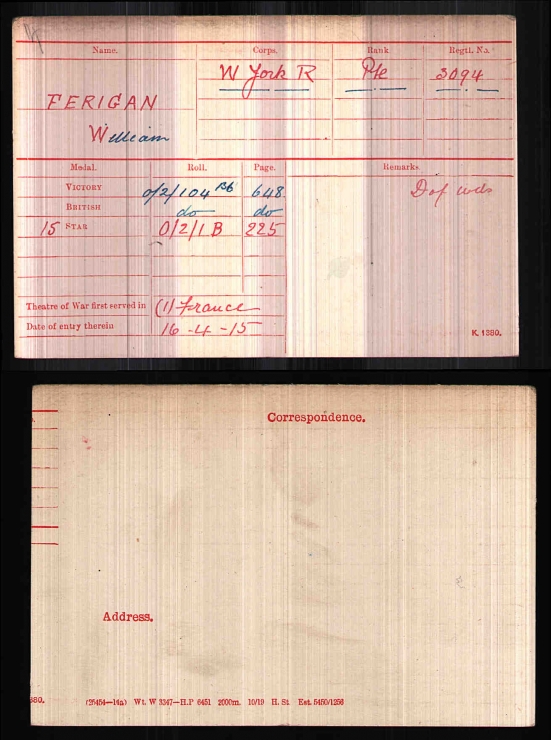 Name. Corps. Rank Regtl. No.
W York R Pte 3094
FERIGAN
William
Medal. Roll. Page. Remarks
VICTORY 0/2/104 B6 648 D of wds
BRITISH do do
15 STAR 0/2/1 B 225
Theatre of War first served in (1) France
Date of entry therein 16-4-15
K. 1380.
Correspondence.
Address.
380. (26454—14a) Wt. W 3347—H.P 6451 2000m. 10/19 H. St. Est. 5450/1256